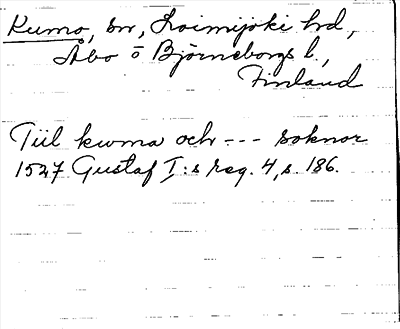 Kumo, sn, Loimijoki hd,
Åbo o Björneborgs l.,
Finland
Tiil kwma och --- soknor
1527 Gustaf I:s reg. 4, s. 186.